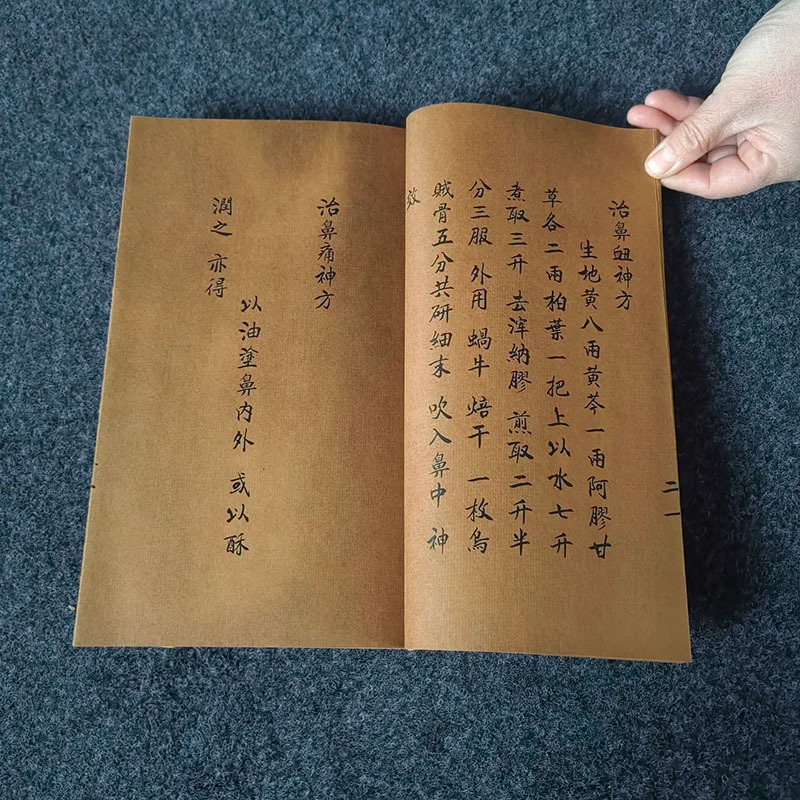 治鼻衄神方
生地黄八兩黄芩一兩阿膠甘
草各二兩柏葉一把上以水七升
煮取三升 去滓納膠 煎取二升半
分三服 外用 蝸牛 焙干 一枚烏
贼骨五分共研细末 吹入鼻中 神
效
二一
治鼻痛神方
以油塗鼻內外 或以酥
潤之 亦得